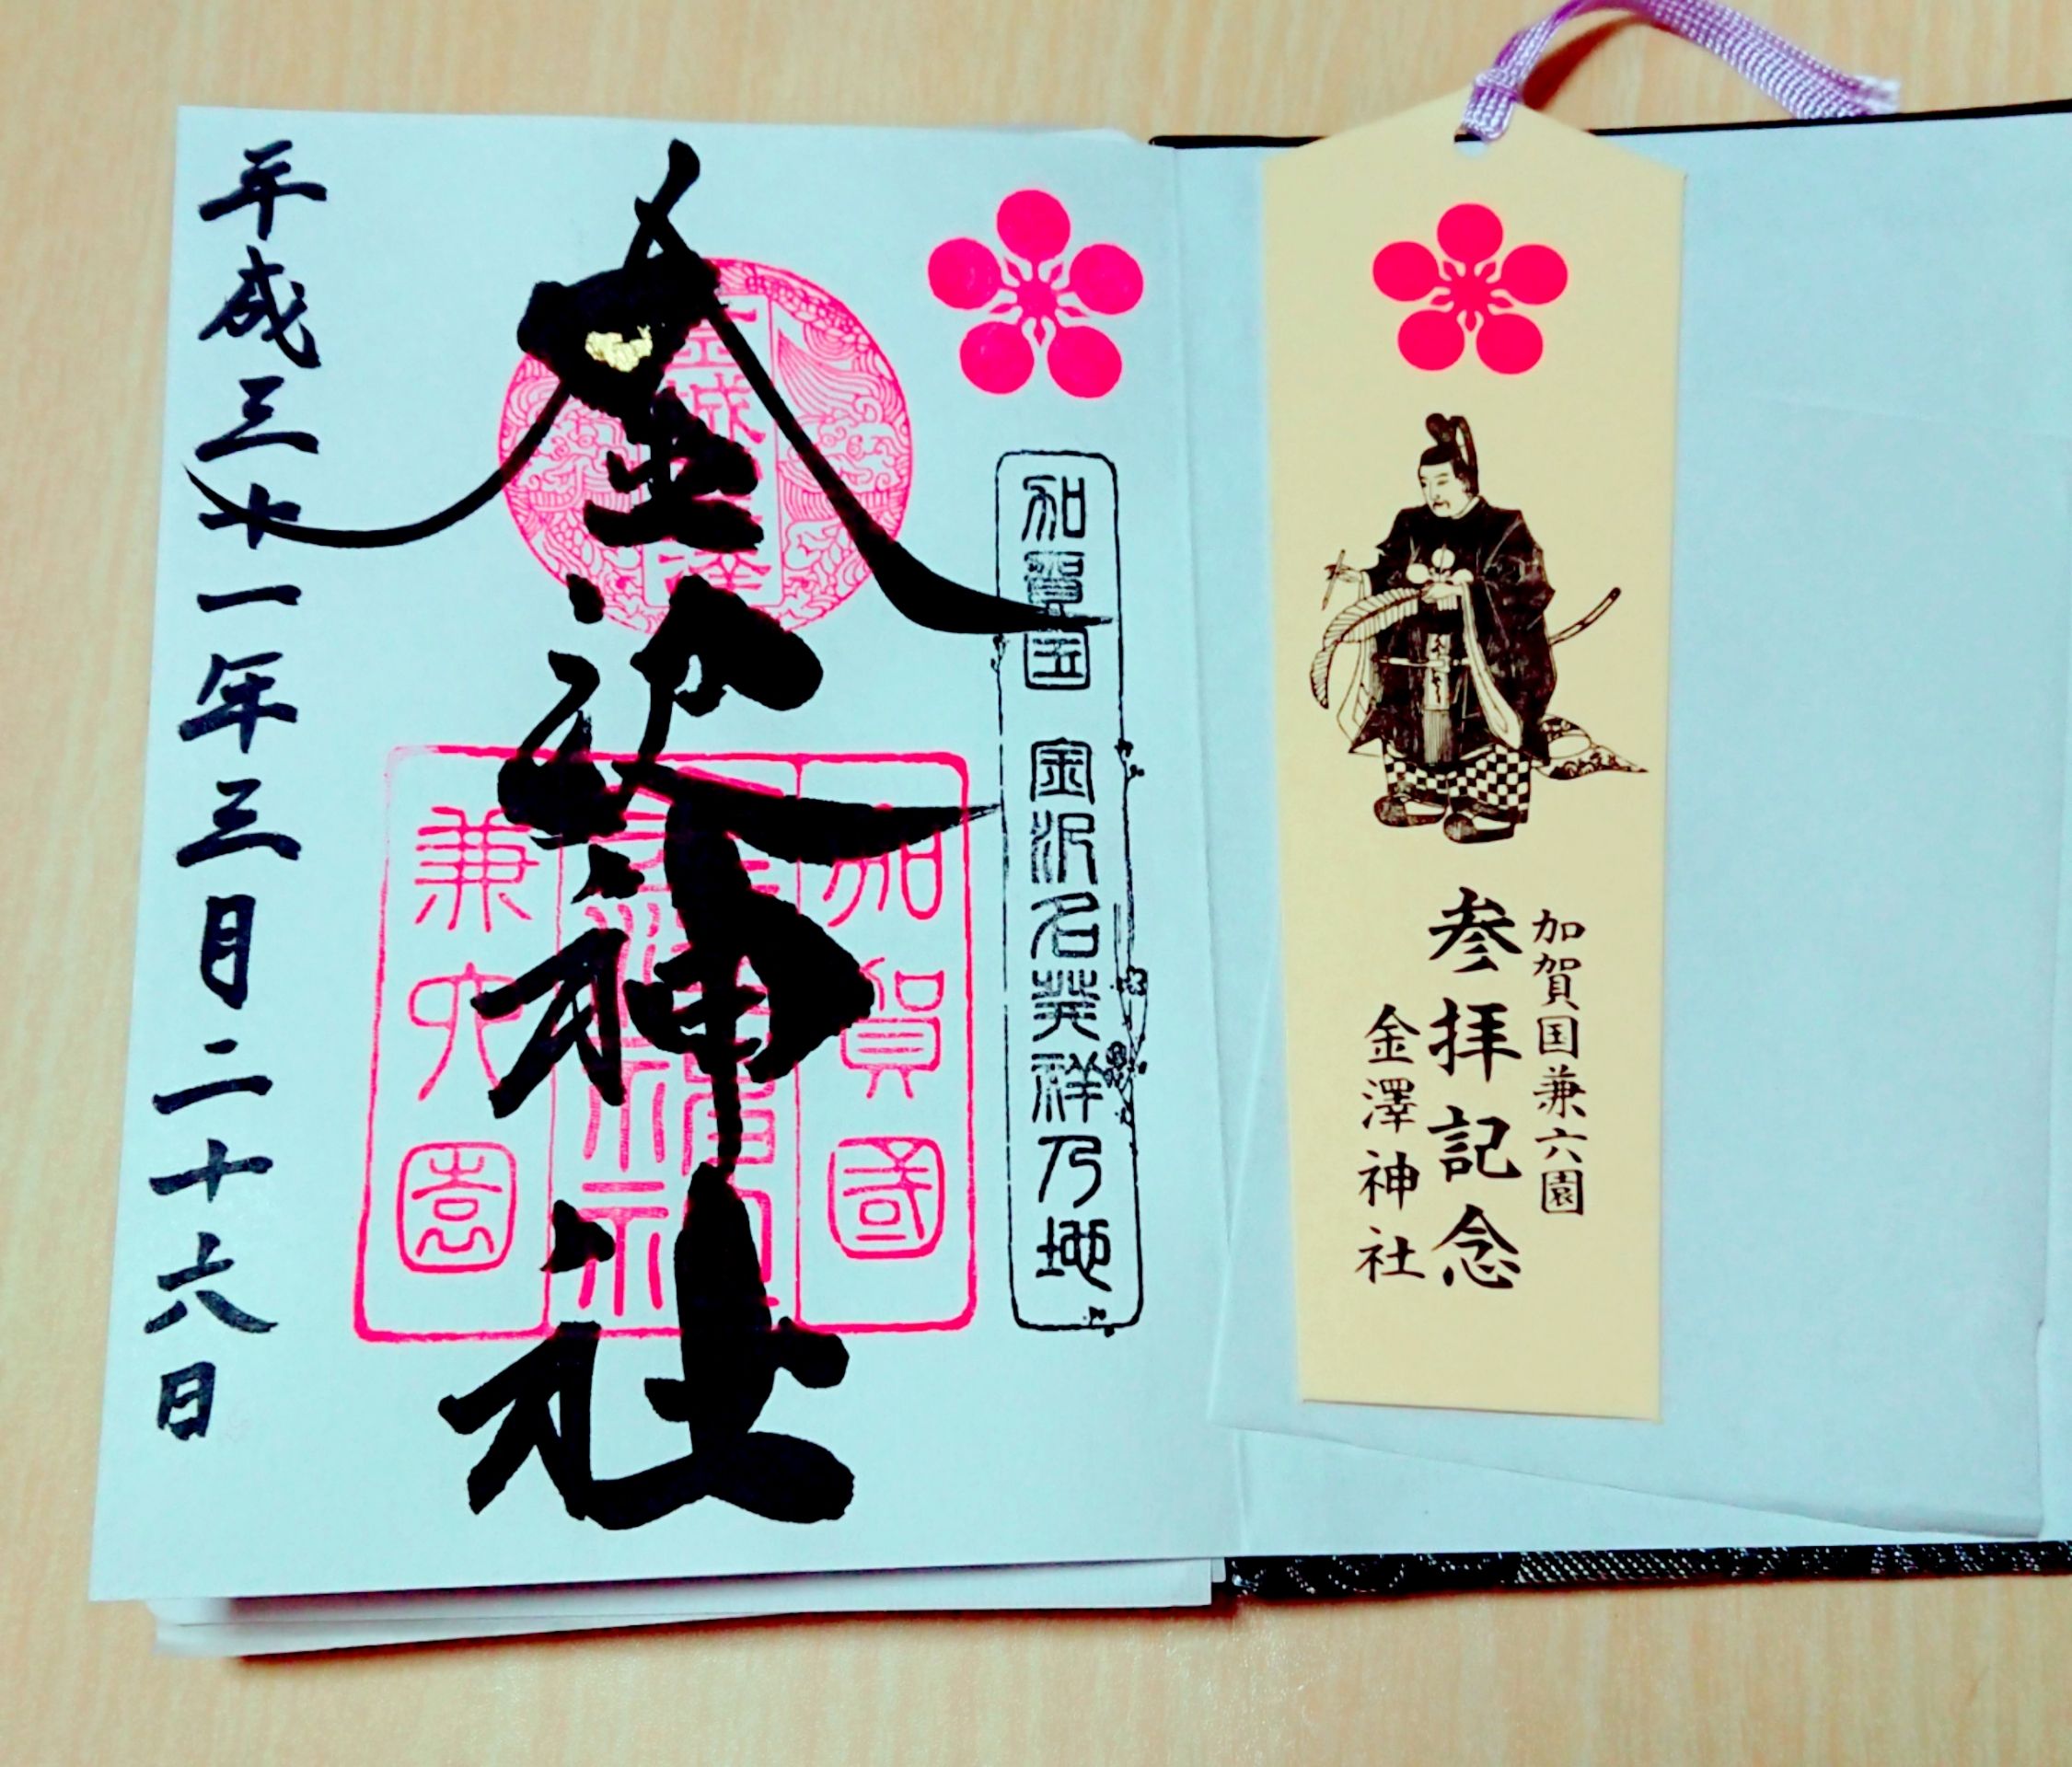 加賀国兼六園
参拝記念
金澤神社
加賀国 金沢名発祥乃地
加賀國
兼六園
金沢神社
平成三十一年三月二十六日